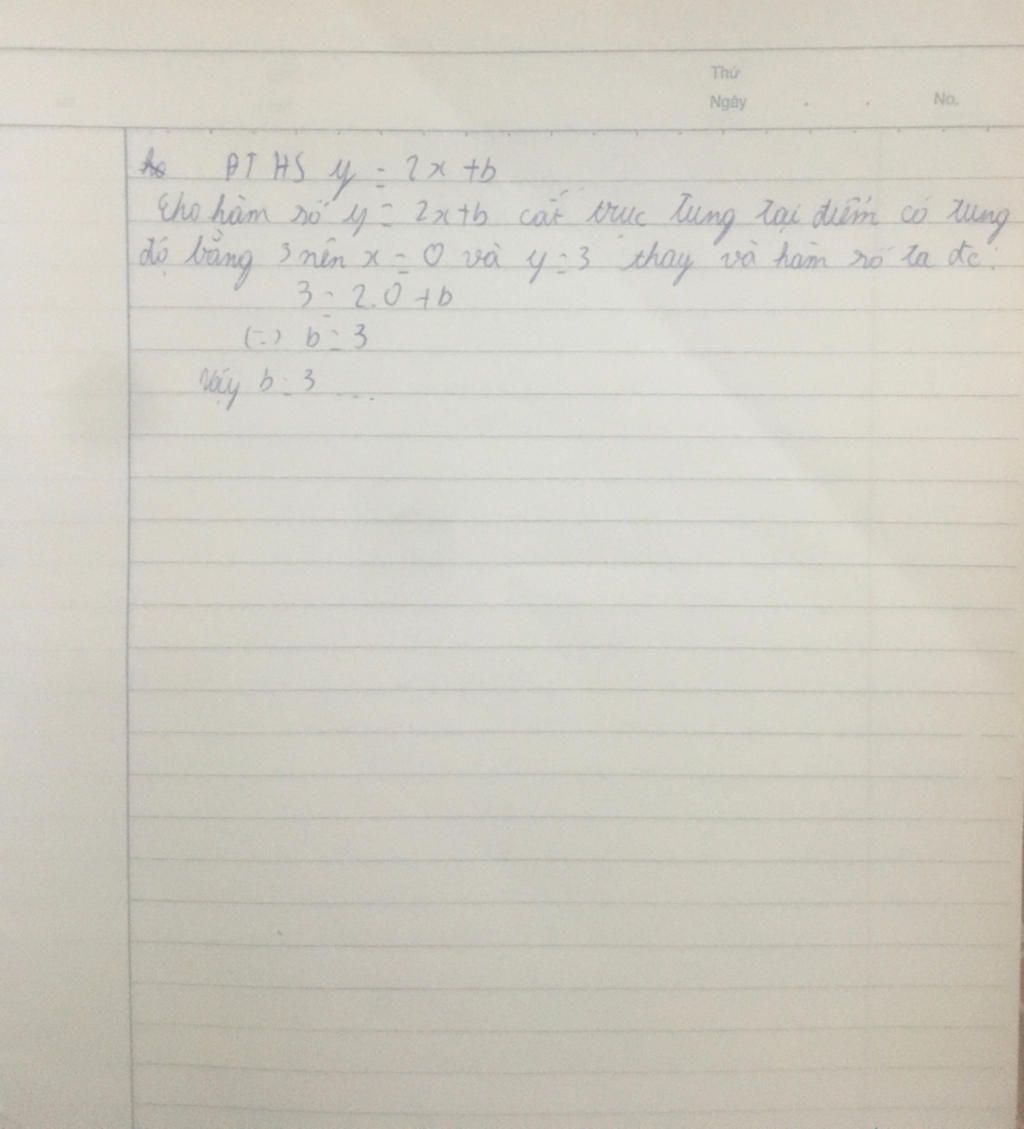 Thứ
Ngày . . No.
ĐTHS y = 2x + b
Cho hàm số y = 2x+b cắt trục tung tại điểm có tung
độ bằng 3 nên x = 0 và y = 3 thay và hàm số ta đc:
3 = 2.0 + b
(=) b = 3
Vậy b = 3 ...